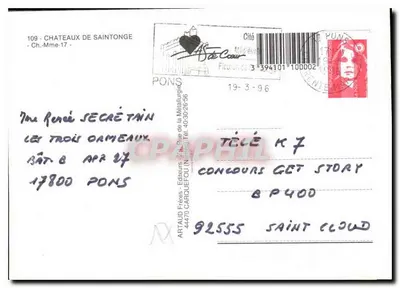 109 - CHATEAUX DE SAINTONGE
- Ch.-Mme 17 -
Cité
As de Cœur
3 394101 100002
PONS
19-3-96
PONS
Mme Renée SECRÉTAIN
LES TROIS ORMEAUX
BÂT. B APP 27
17800 PONS
ARTAUD Frères - Éditeurs - Rue de la Métallurgie
44470 CARQUEFOU Tél. 40-30-26-56
CPARAMA.COM
TÉLÉ K7
CONCOURS GET STORY
BP400
92555 SAINT CLOUD